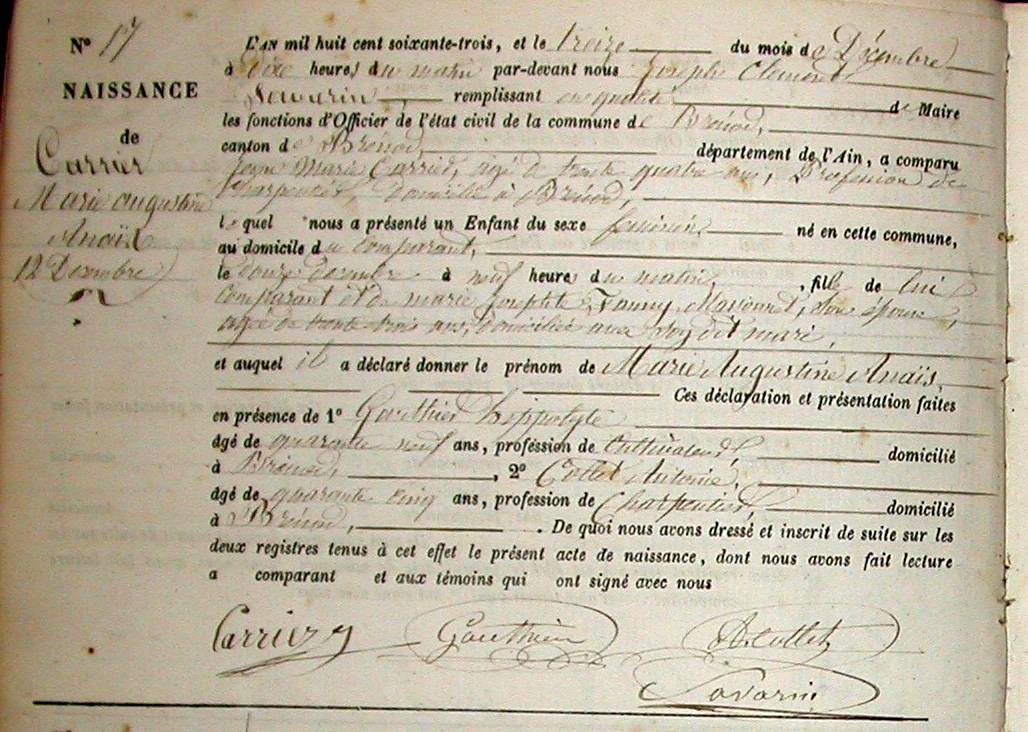 N° 17
NAISSANCE
de
Carrier
Marie augustine
Anaïs
12 Décembre
L'AN mil huit cent soixante-trois, et le treize du mois de Décembre
à dix heures du matin par-devant nous Joseph Clément
Savarin remplissant en qualité de Maire
les fonctions d'Officier de l'état civil de la commune de Brénod,
canton de Brénod, département de l'Ain, a comparu
Marie Carrier, agé de trente quatre ans, Profession de
Charpentier, domicilié à Brénod,
lequel nous a présenté un Enfant du sexe féminin né en cette commune,
au domicile du comparant,
le douze décembre à neuf heures du matin, fille de lui
comparant et de marie Josephte Fanny, son épouse,
agée de trente trois ans, domiciliée avec son dit mari,
et auquel il a déclaré donner le prénom de Marie Augustine Anaïs,
Ces déclaration et présentation faites
en présence de 1° Gauthier hippolyte
âgé de quarante neuf ans, profession de Cultivateur, domicilié
à Brénod, 2° Collet Antoine,
âgé de quarante cinq ans, profession de Charpentier domicilié
à Brénod, . De quoi nous avons dressé et inscrit de suite sur les
deux registres tenus à cet effet le présent acte de naissance, dont nous avons fait lecture
a comparant et aux témoins qui ont signé avec nous
Carrier Gauthier A. Collet
Savarin